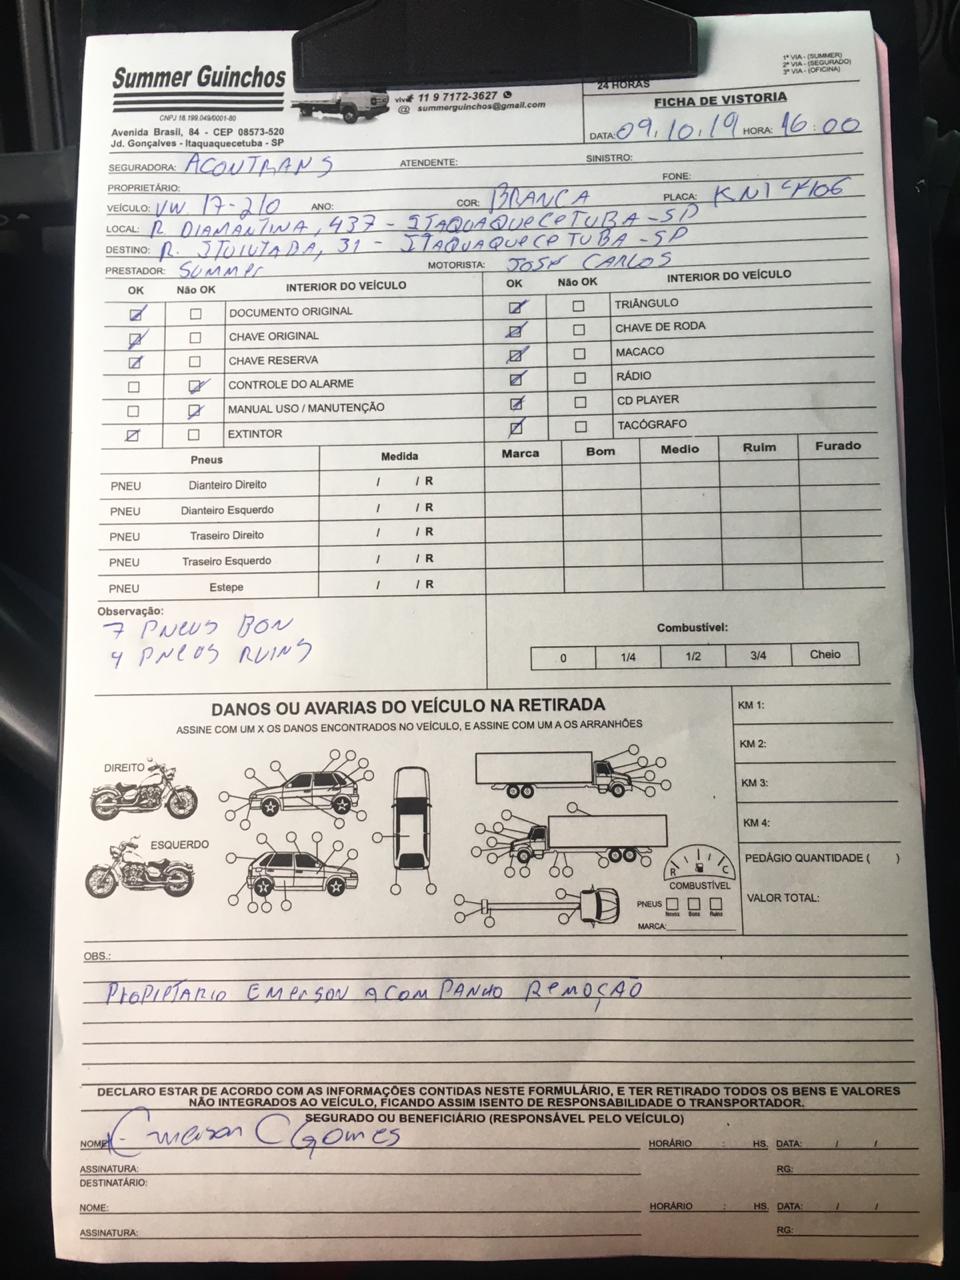 Summer Guinchos
CNPJ 18.199.049/0001-80
Avenida Brasil, 84 - CEP 08573-520
Jd. Gonçalves - Itaquaquecetuba - SP
11 9 7172-3627
summerguinchos@gmail.com
24 HORAS
1ª VIA - (SUMMER)
2ª VIA - (SEGURADO)
3ª VIA - (OFICINA)
FICHA DE VISTORIA
DATA: 09.10.19 HORA: 16:00
SEGURADORA: ACONTRANS ATENDENTE: SINISTRO:
PROPRIETÁRIO: FONE:
VEÍCULO: VW. 17-210 ANO: COR: BRANCA PLACA:
LOCAL: R DIAMANTINA, 437 - ITAQUAQUECETUBA - SP
DESTINO: R. ITUIUTADA, 31 - ITAQUAQUECETUBA - SP
PRESTADOR: SUMMER MOTORISTA: JOSE CARLOS
OK Não OK INTERIOR DO VEÍCULO OK Não OK INTERIOR DO VEÍCULO
DOCUMENTO ORIGINAL TRIÂNGULO
CHAVE ORIGINAL CHAVE DE RODA
CHAVE RESERVA MACACO
CONTROLE DO ALARME RÁDIO
MANUAL USO / MANUTENÇÃO CD PLAYER
EXTINTOR TACÓGRAFO
Pneus Medida Marca Bom Medio Ruim Furado
PNEU Dianteiro Direito / / R
PNEU Dianteiro Esquerdo / / R
PNEU Traseiro Direito / / R
PNEU Traseiro Esquerdo / / R
PNEU Estepe / / R
Observação:
7 PNEUS BON
4 PNEOS RUINS
Combustível:
0 1/4 1/2 3/4 Cheio
DANOS OU AVARIAS DO VEÍCULO NA RETIRADA
ASSINE COM UM X OS DANOS ENCONTRADOS NO VEÍCULO, E ASSINE COM UM A OS ARRANHÕES
KM 1:
KM 2:
KM 3:
KM 4:
PEDÁGIO QUANTIDADE ( )
VALOR TOTAL:
DIREITO
ESQUERDO
R C
COMBUSTÍVEL
PNEUS
Novos Bons Ruins
MARCA:
OBS.:
PROPIETARIO EMERSON ACOMPANHO REMOÇÃO
DECLARO ESTAR DE ACORDO COM AS INFORMAÇÕES CONTIDAS NESTE FORMULÁRIO, E TER RETIRADO TODOS OS BENS E VALORES
NÃO INTEGRADOS AO VEÍCULO, FICANDO ASSIM ISENTO DE RESPONSABILIDADE O TRANSPORTADOR.
SEGURADO OU BENEFICIÁRIO (RESPONSÁVEL PELO VEÍCULO)
NOME: Emerson C Gomes HORÁRIO : HS. DATA: / /
ASSINATURA: RG:
DESTINATÁRIO:
NOME: HORÁRIO : HS. DATA: / /
ASSINATURA: RG: